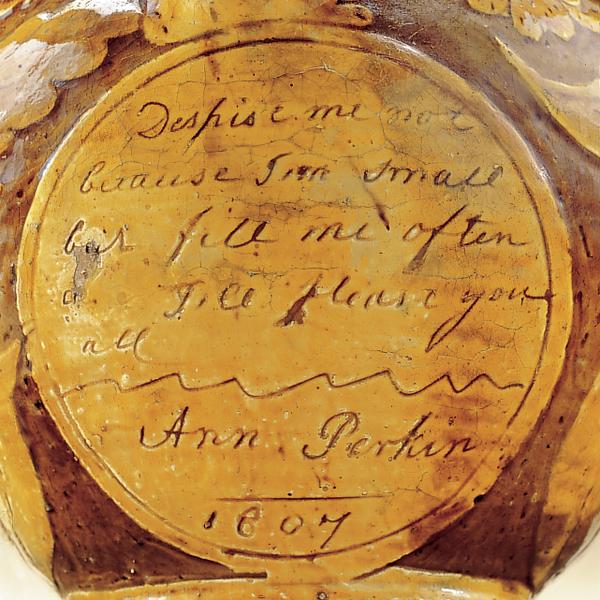 Despise me not
because Im small
but fill me often
Ill please you
all
Ann Perkin
1807